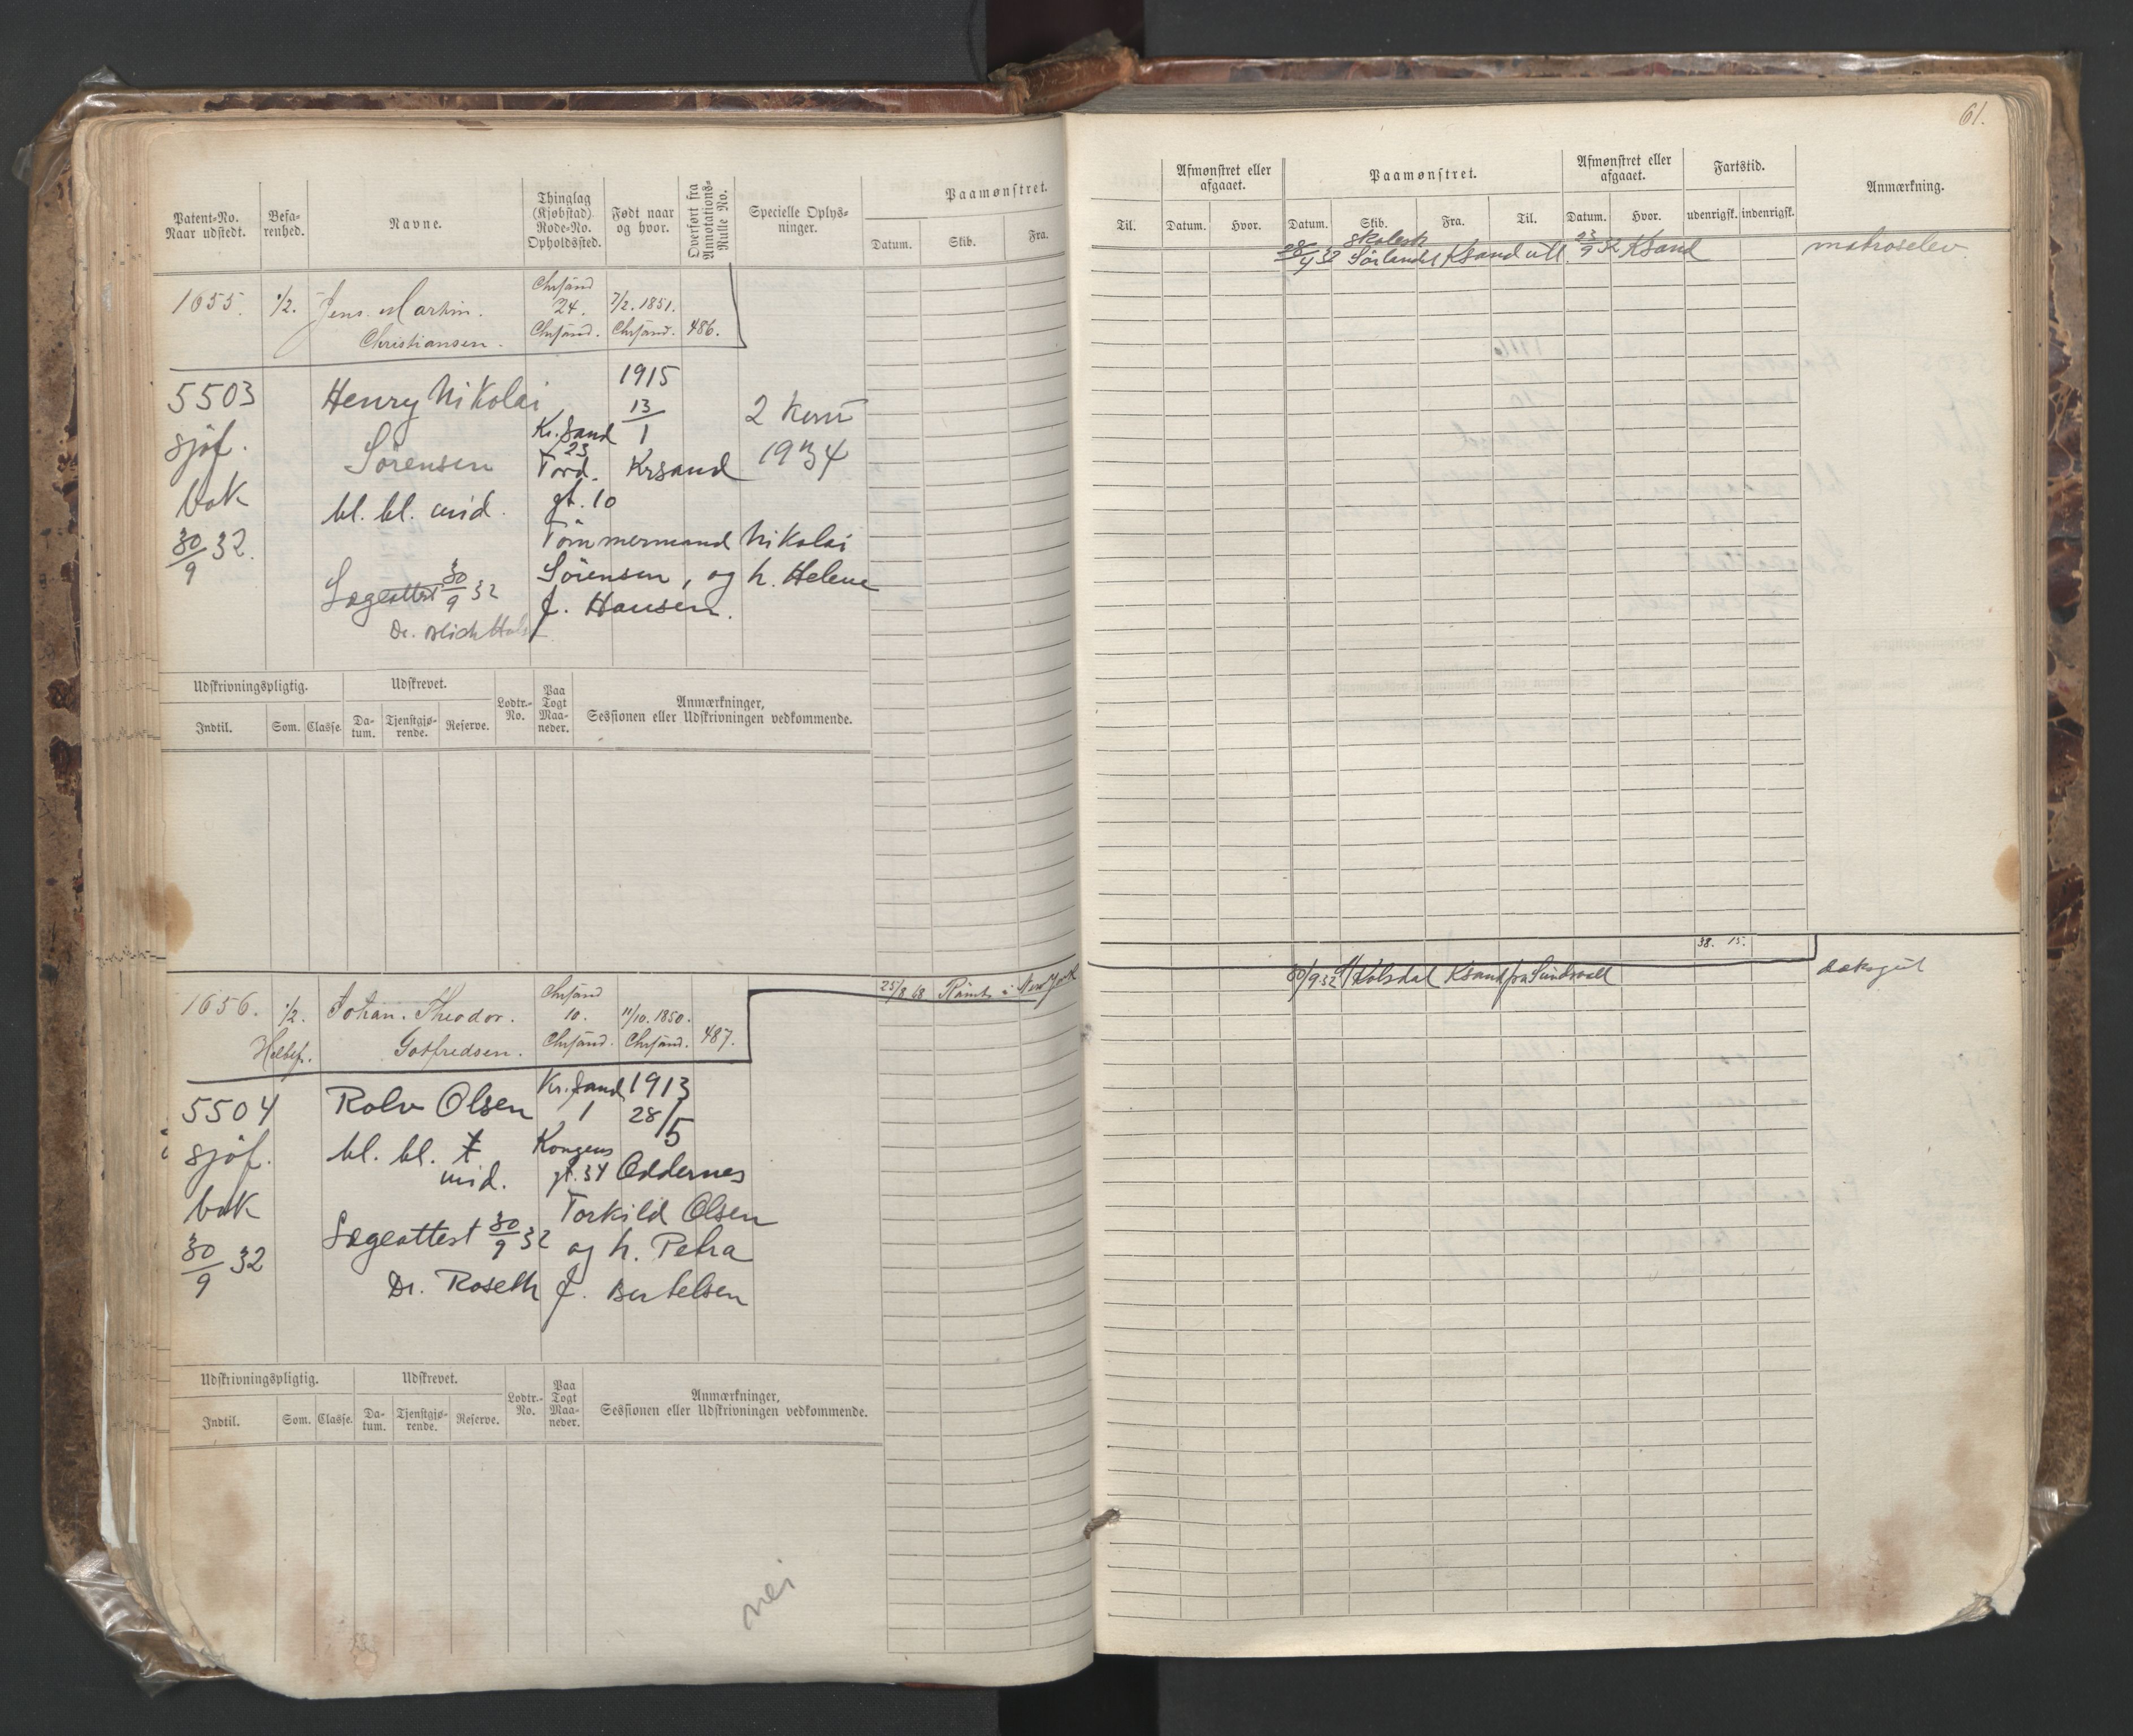 Patent-No. Naar udstedt.
Befarenhed.
Navne.
Thinglag (Kjøbstad) Rode-No. Opholdssted.
Født naar og hvor.
Overført fra Annotations-Rulle No.
Specielle Oplysninger.
Paamønstret.
Datum. Skib. Fra.
1655. ½. Jens Martin Christiansen.
Chrsand 24. Chrsand.
7/2. 1851. Chrsand. 486.
5503
sjøf.
bok
30/9 32.
Henry Nikolai
Sørensen
bl. bl. mid.
Lægeattest 30/9 32
Kr.sand
23
Tord.
gt. 10
1915
13/1
Krsand
1934
Tömmermand Nikolai
Sörensen, og h. Helene
f. Hansen.
Udskrivningspligtig. Udskrevet. Lodtr.-No. Paa Togt Maaneder. Anmærkninger, Sessionen eller Udskrivningen vedkommende.
Indtil. Som. Classe. Datum. Tjenstgjørende. Reserve.
1656. ½. Johan Theodor
Gotfredsen.
Chrsand 10. Chrsand.
11/10. 1850. Chrsand. 487.
25/8 68 Rømt i New York
5504
sjøf.
bok
30/9 32
Rolv Olsen
bl. bl.
mid.
Lægeattest 30/9 32
Dr. Roseth
Kr.sand
1
Kongens
gt. 34
1913
28/5
Oddernes
Torkild Olsen
og h. Petra
f. Bertelsen
Udskrivningspligtig. Udskrevet. Lodtr.-No. Paa Togt Maaneder. Anmærkninger, Sessionen eller Udskrivningen vedkommende.
Indtil. Som. Classe. Datum. Tjenstgjørende. Reserve.
nei
61.
Afmønstret eller afgaaet. Paamønstret. Afmønstret eller afgaaet. Fartstid. Anmærkning.
Til. Datum. Hvor. Datum. Skib. Fra. Til. Datum. Hvor. udenrigsk. indenrigsk.
28/4 32 skolesk Sörlandet Ksand utl. 23/9 32 Ksand matroselev.
38. 15.
30/9 32 Kolsdal Ksand fra Sundsvall deksgut